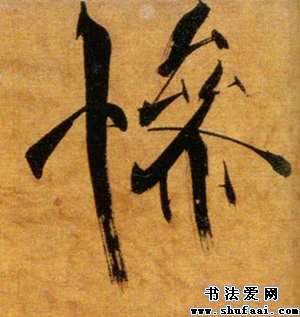 惨
书法爱网
www.shufaai.com